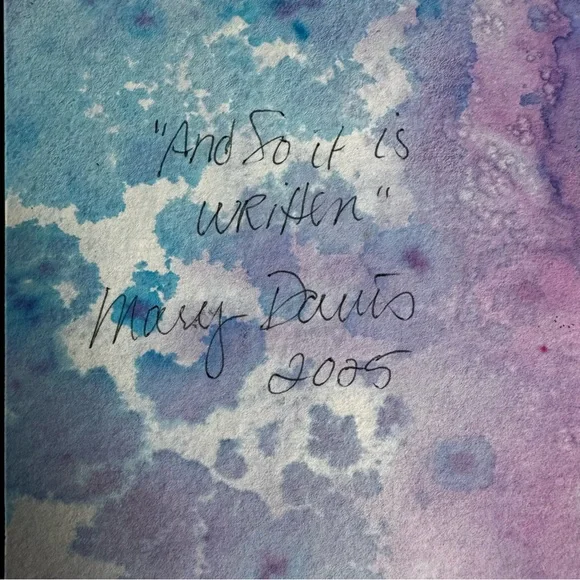 "And So it is
written"
Mary Davis
2025